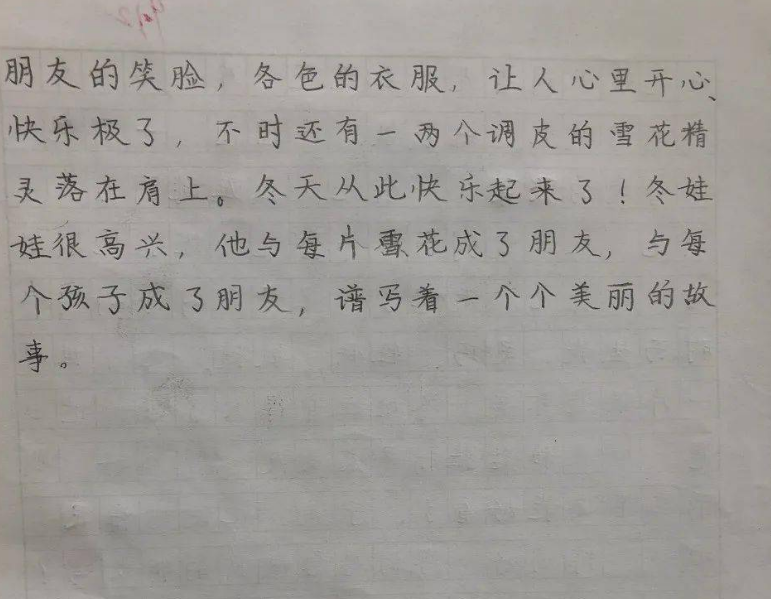 朋友的笑脸，各色的衣服，让人心里开心、
快乐极了，不时还有一两个调皮的雪花精
灵落在肩上。冬天从此快乐起来了！冬娃
娃很高兴，他与每片雪花成了朋友，与每
个孩子成了朋友，谱写着一个个美丽的故
事。